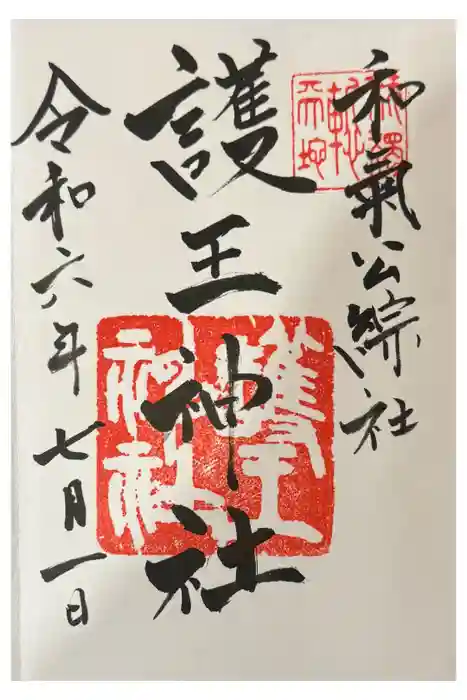 和氣公綜社
護王神社
護王神社
令和六年七月一日